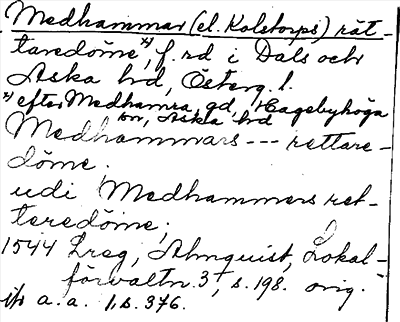 Medhammar (el. Kolstorps) rät-
taredöme x), f. rd i Dals och
Aska hd, Österg. l.
x) efter Medhamra, gd, Hagebyhöga
sn, Aska hd
Medhammars --- rettare-
döme.
udi Medhammers ret-
teredöme;
1544 Lreg, Almquist, Lokal-
förvaltn. 3, s. 198. orig.
a. a. 1, s. 376.